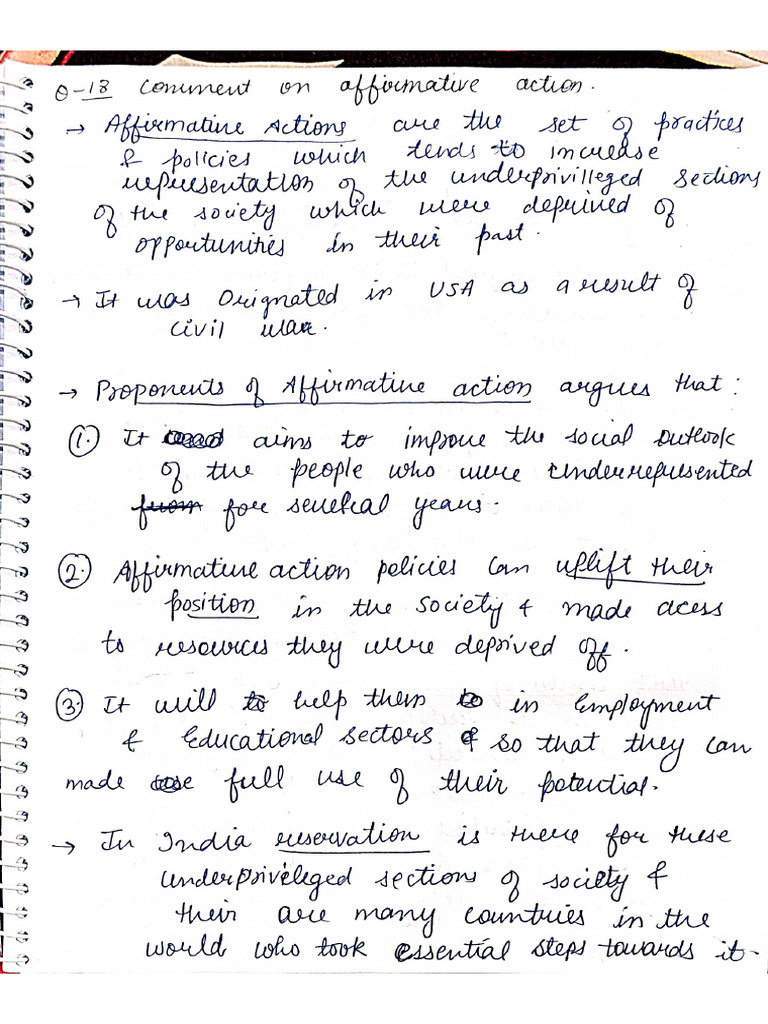 Q-18 Comment on affirmative action.
→ Affirmative Actions are the set of practices
& policies which tends to increase
representation of the underprivilleged sections
of the society which were deprived of
opportunities in their past.
→ It was Orignated in USA as a result of
civil war.
→ Proponents of Affirmative action argues that :
1. It aims to improve the social outlook
of the people who were underrepresented
from for several years.
2. Affirmative action policies can uplift their
position in the society & made acess
to resources they were deprived off.
3. It will to help them to in Employment
& Educational sectors & so that they can
made full use of their potential.
→ In India reservation is there for these
underprivileged sections of society &
their are many countries in the
world who took essential steps towards it-